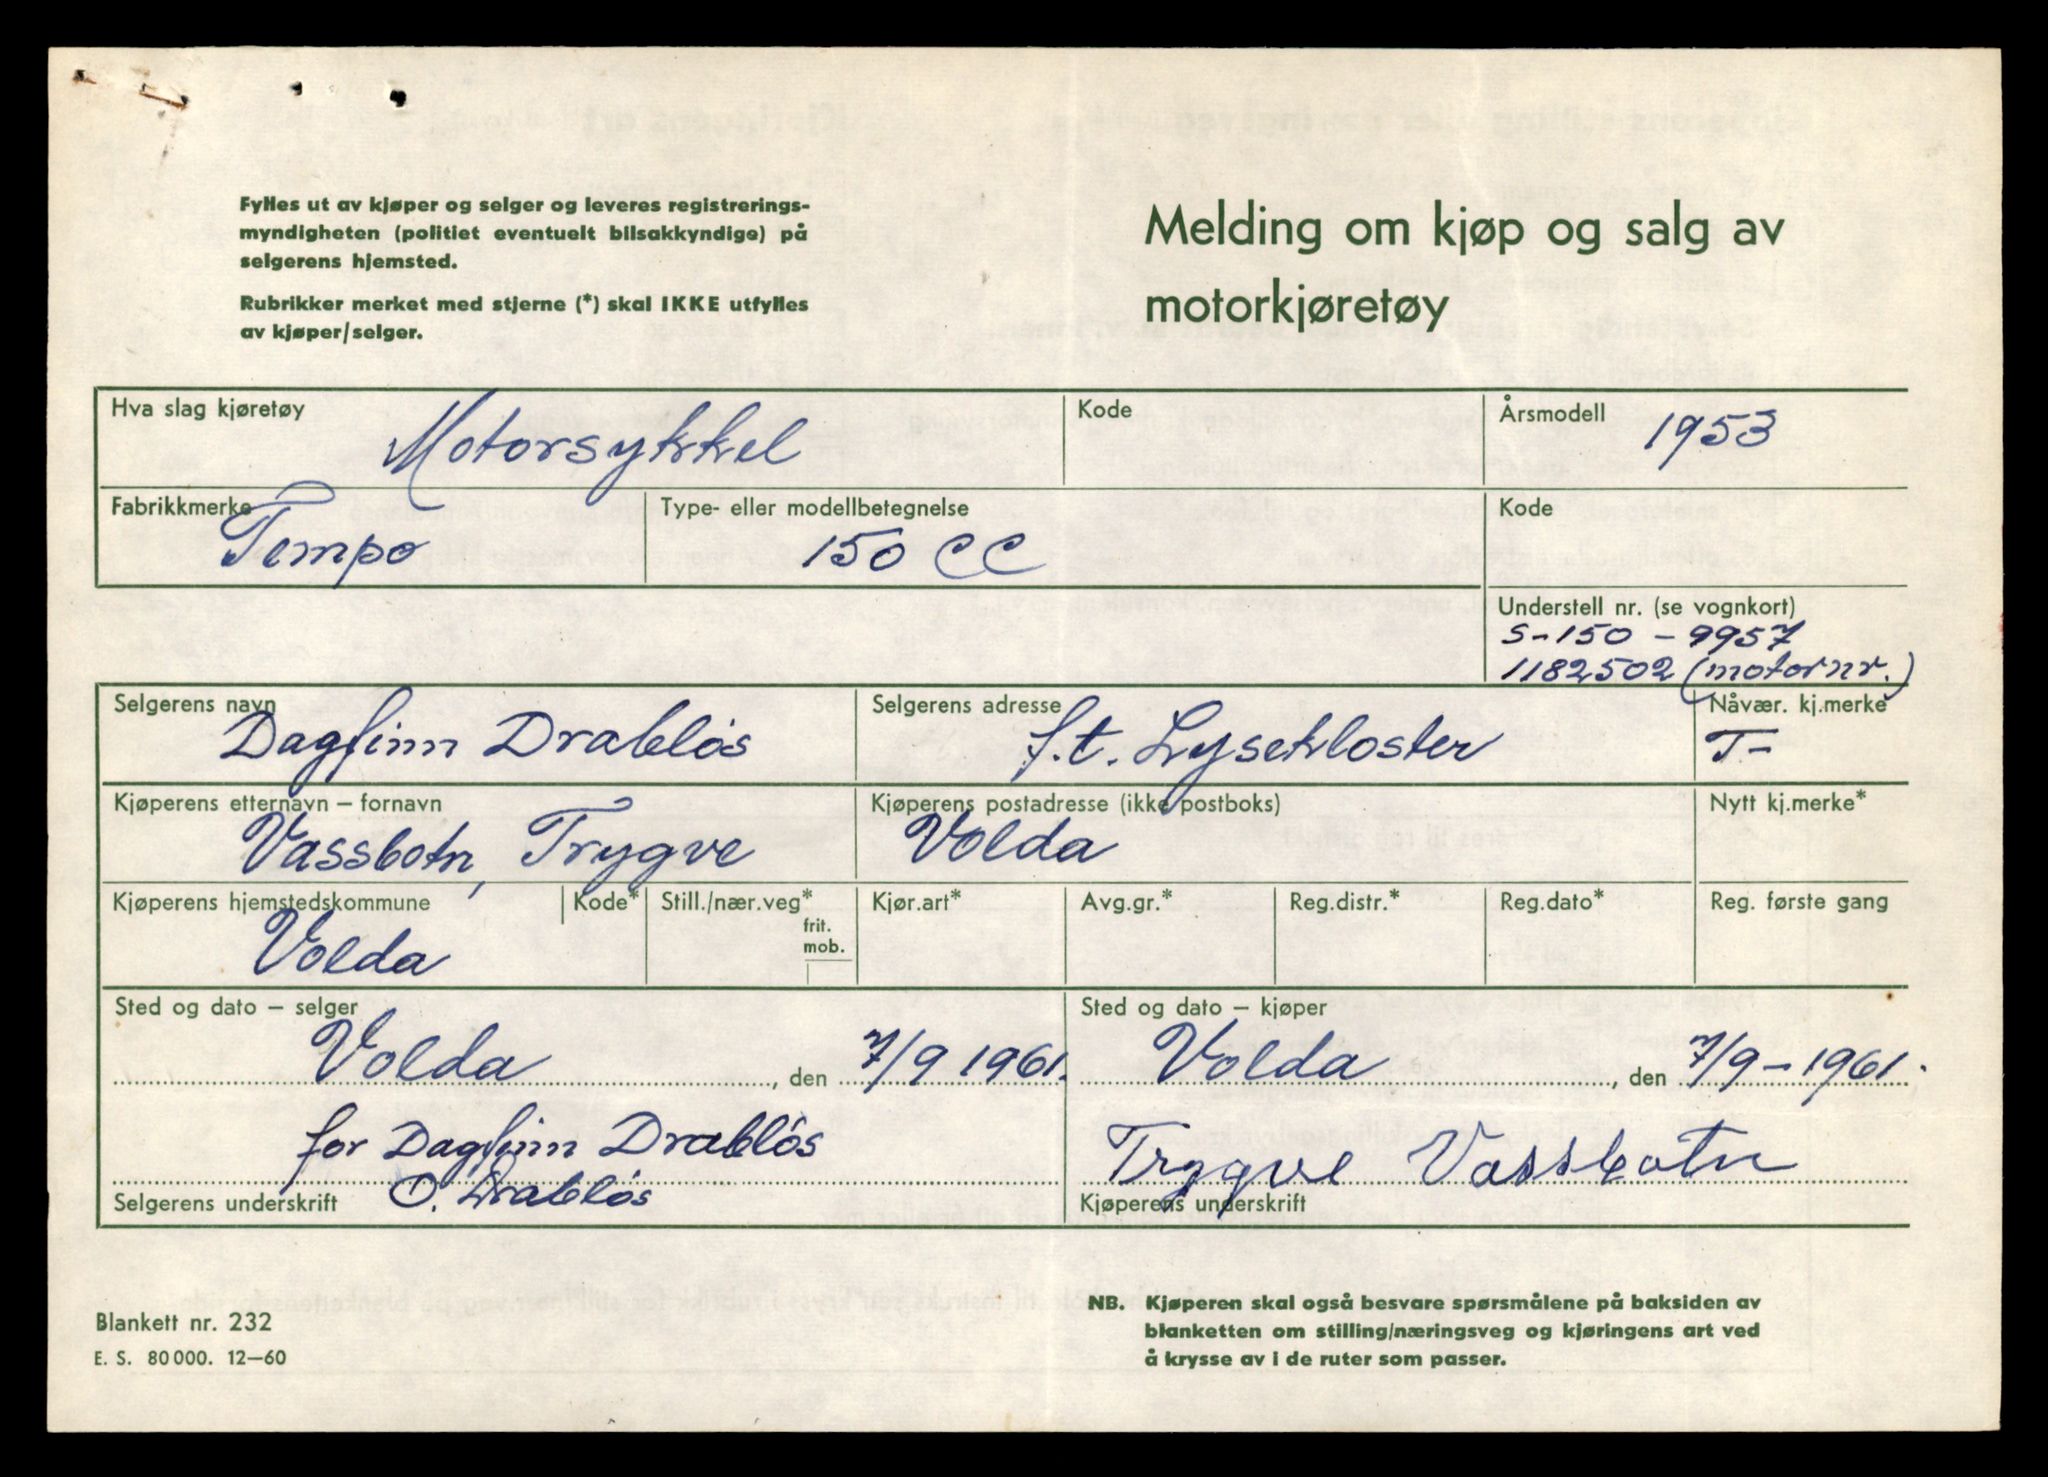 Fylles ut av kjøper og selger og leveres registrerings-
myndigheten (politiet eventuelt bilsakkyndige) på
selgerens hjemsted.
Rubrikker merket med stjerne (*) skal IKKE utfylles
av kjøper/selger.
Melding om kjøp og salg av
motorkjøretøy
Hva slag kjøretøy
Motorsykkel
Kode
Årsmodell
1953
Fabrikkmerke
Tempo
Type- eller modellbetegnelse
150 CC
Kode
Understell nr. (se vognkort)
S-150 - 9957
1182502 (motornr.)
Selgerens navn
Dagfinn Drabløs
Selgerens adresse
f.t. Lysekloster
Nåvær. kj.merke
T-
Kjøperens etternavn – fornavn
Vassbotn, Trygve
Kjøperens postadresse (ikke postboks)
Volda
Nytt kj.merke*
Kjøperens hjemstedskommune
Volda
Kode*
Still./nær.veg*
frit.
mob.
Kjør.art*
Avg.gr.*
Reg.distr.*
Reg.dato*
Reg. første gang
Sted og dato – selger
Volda, den 7/9 1961.
for Dagfinn Drabløs
O. Drabløs
Selgerens underskrift
Sted og dato – kjøper
Volda, den 7/9 - 1961.
Trygve Vassbotn
Kjøperens underskrift
Blankett nr. 232
E. S. 80 000. 12–60
NB. Kjøperen skal også besvare spørsmålene på baksiden av
blanketten om stilling/næringsveg og kjøringens art ved
å krysse av i de ruter som passer.